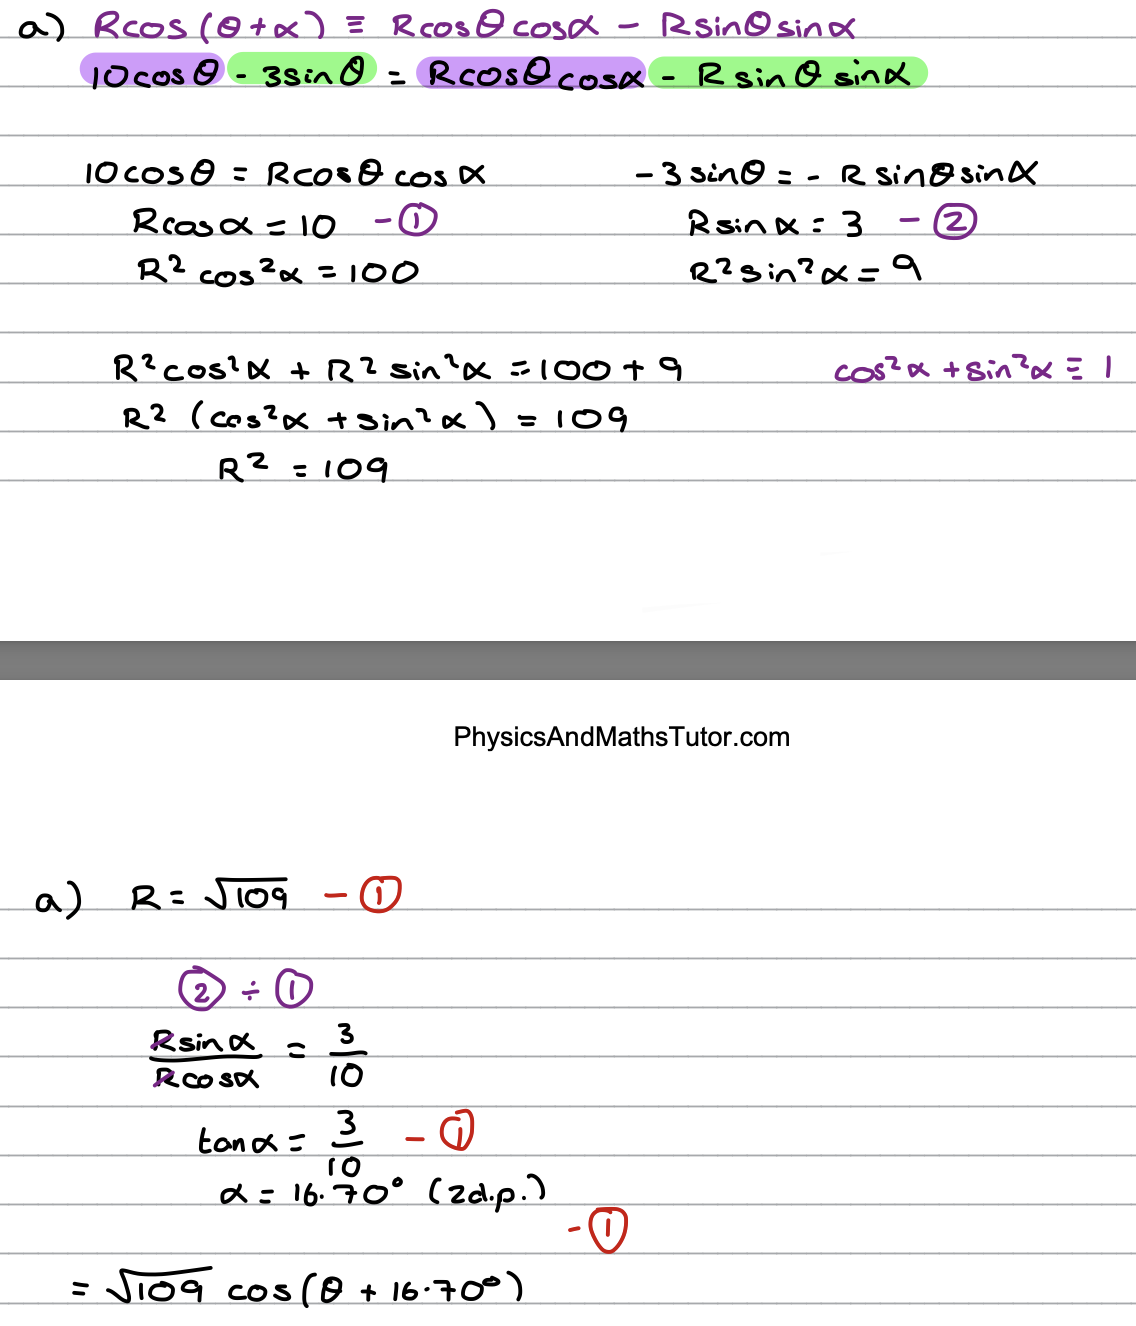 a) Rcos(θ+α) ≡ Rcosθcosα − Rsinθsinα
10cosθ - 3sinθ = Rcosθcosα - Rsinθsinα
10cosθ = Rcosθcosα
-3sinθ = - Rsinθsinα
Rcosα = 10 - ①
Rsinα = 3 - ②
R²cos²α = 100
R²sin²α = 9
R²cos²α + R²sin²α = 100 + 9
cos²α + sin²α ≡ 1
R² (cos²α + sin²α) = 109
R² = 109
PhysicsAndMathsTutor.com
a) R = √109 - ①
② ÷ ①
Rsinα/Rcosα = 3/10
tanα = 3/10 - ①
α = 16.70° (2d.p.)
- ①
= √109 cos(θ + 16.70°)